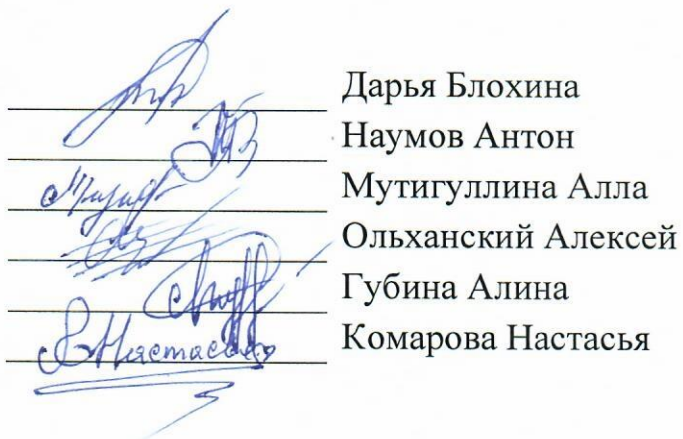 Дарья Блохина
Наумов Антон
Мутигуллина Алла
Ольханский Алексей
Губина Алина
Комарова Настасья